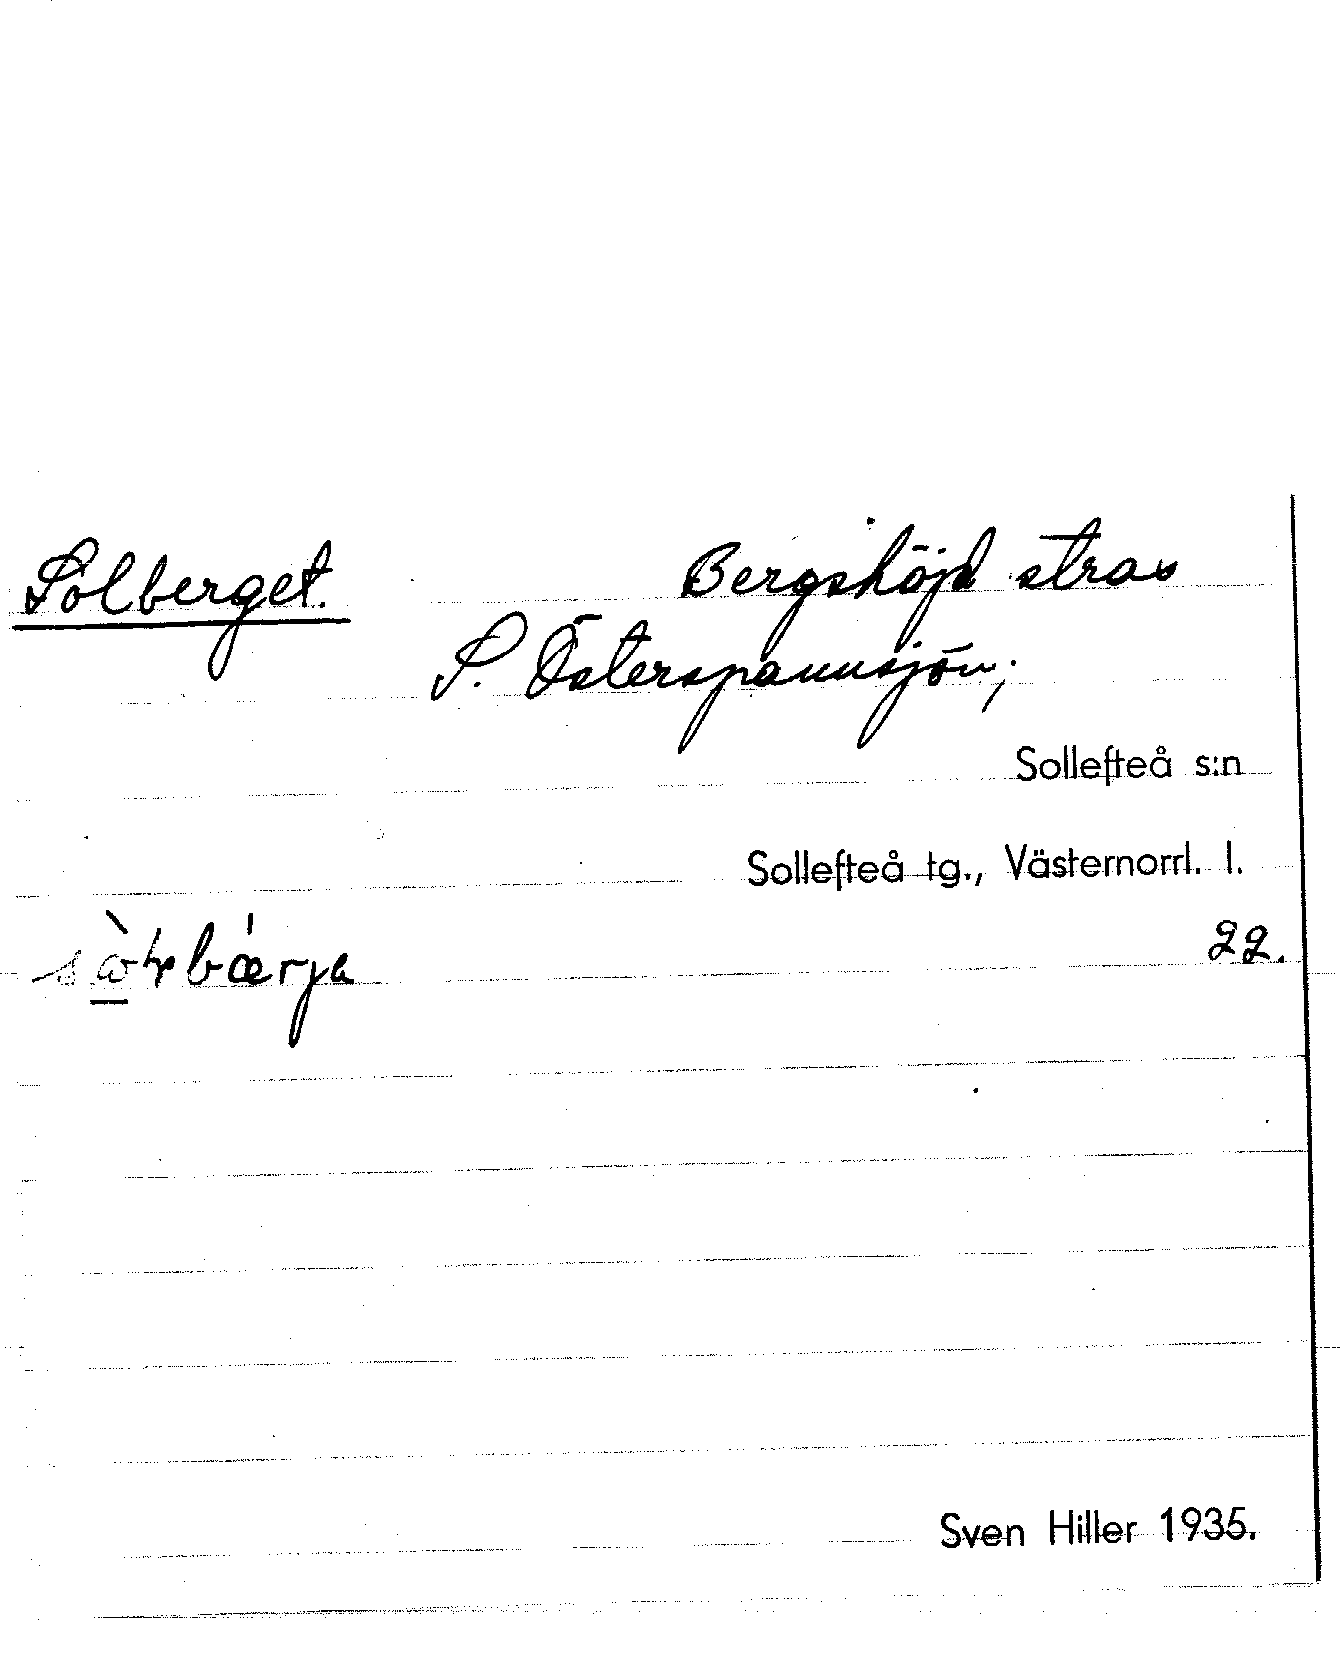 Solberget. Bergshöjd strax
S. Österspannsjön;
Sollefteå s:n
Sollefteå tg., Västernorrl. l.
22.
Sven Hiller 1935.